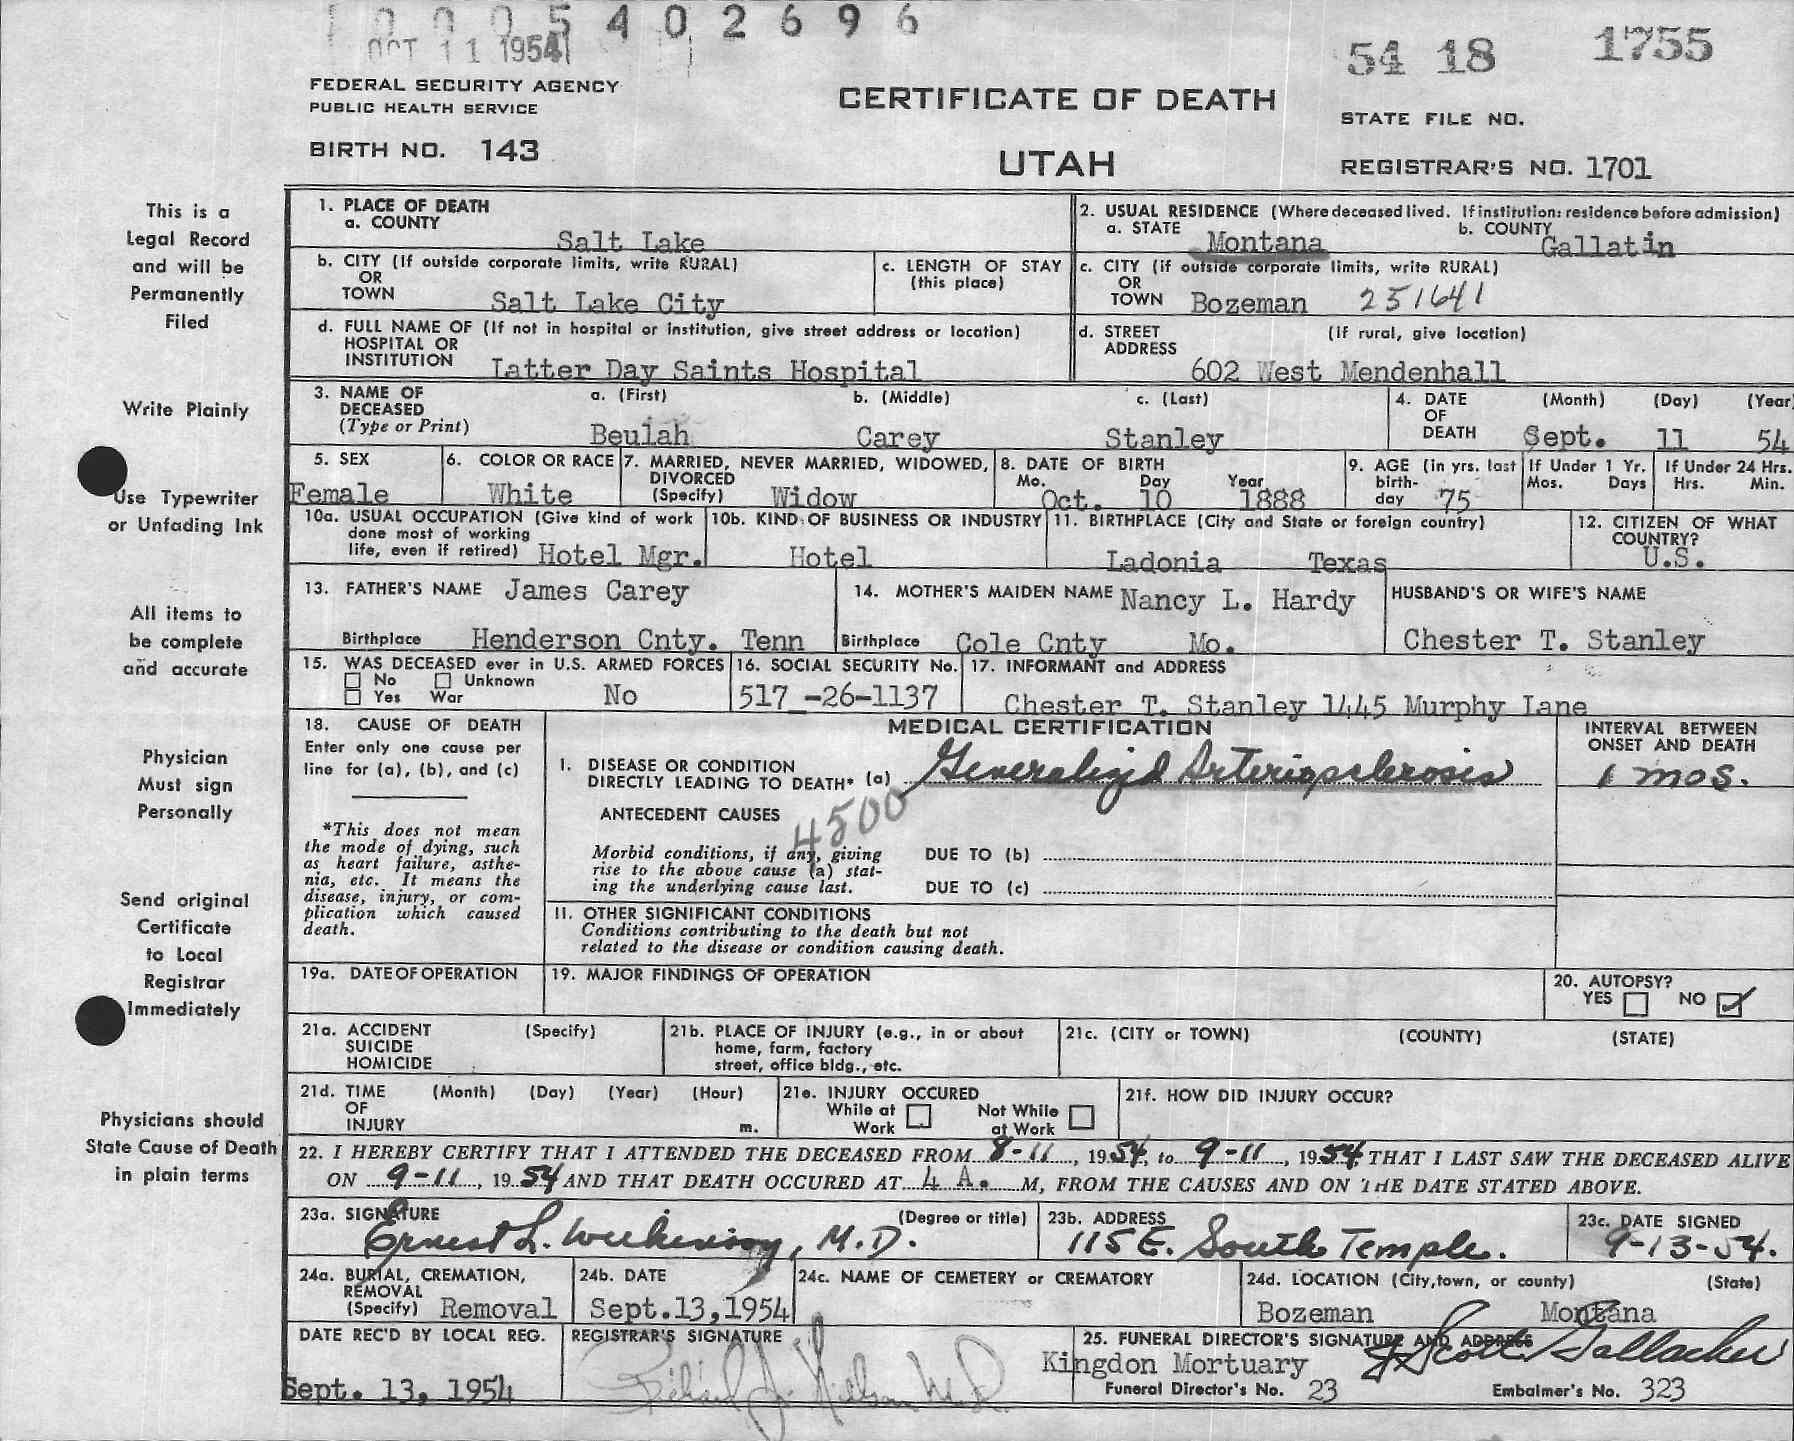 5 4 0 2 6 9 6
OCT 11 1954
54 18 1755
FEDERAL SECURITY AGENCY
PUBLIC HEALTH SERVICE
CERTIFICATE OF DEATH
STATE FILE NO.
BIRTH NO. 143
UTAH
REGISTRAR'S NO. 1701
This is a
Legal Record
and will be
Permanently
Filed
Write Plainly
Use Typewriter
or Unfading Ink
All items to
be complete
and accurate
Physician
Must sign
Personally
Send original
Certificate
to Local
Registrar
Immediately
Physicians should
State Cause of Death
in plain terms
1. PLACE OF DEATH
a. COUNTY
Salt Lake
2. USUAL RESIDENCE (Where deceased lived. If institution: residence before admission)
a. STATE Montana b. COUNTY Gallatin
b. CITY (If outside corporate limits, write RURAL)
OR
TOWN Salt Lake City
c. LENGTH OF STAY
(this place)
c. CITY (if outside corporate limits, write RURAL)
OR
TOWN Bozeman 251641
d. FULL NAME OF (If not in hospital or institution, give street address or location)
HOSPITAL OR
INSTITUTION Latter Day Saints Hospital
d. STREET (If rural, give location)
ADDRESS
602 West Mendenhall
3. NAME OF DECEASED
(Type or Print)
a. (First) b. (Middle) c. (Last)
Beulah Carey Stanley
4. DATE OF DEATH (Month) (Day) (Year)
Sept. 11 54
5. SEX
Female
6. COLOR OR RACE
White
7. MARRIED, NEVER MARRIED, WIDOWED,
DIVORCED
(Specify) Widow
8. DATE OF BIRTH
Mo. Day Year
Oct. 10 1888
9. AGE (in yrs. last
birth-
day 75
If Under 1 Yr.
Mos. Days
If Under 24 Hrs.
Hrs. Min.
10a. USUAL OCCUPATION (Give kind of work
done most of working
life, even if retired) Hotel Mgr.
10b. KIND OF BUSINESS OR INDUSTRY
Hotel
11. BIRTHPLACE (City and State or foreign country)
Ladonia Texas
12. CITIZEN OF WHAT
COUNTRY?
U.S.
13. FATHER'S NAME James Carey
Birthplace Henderson Cnty. Tenn
14. MOTHER'S MAIDEN NAME Nancy L. Hardy
Birthplace Cole Cnty Mo.
HUSBAND'S OR WIFE'S NAME
Chester T. Stanley
15. WAS DECEASED ever in U.S. ARMED FORCES
No Unknown
Yes War No
16. SOCIAL SECURITY No.
517 -26-1137
17. INFORMANT and ADDRESS
Chester T. Stanley 1445 Murphy Lane
18. CAUSE OF DEATH
Enter only one cause per
line for (a), (b), and (c)
*This does not mean
the mode of dying, such
as heart failure, asthe-
nia, etc. It means the
disease, injury, or com-
plication which caused
death.
MEDICAL CERTIFICATION
INTERVAL BETWEEN
ONSET AND DEATH
I. DISEASE OR CONDITION
DIRECTLY LEADING TO DEATH* (a) Generalized Arteriosclerosis
1 mos.
ANTECEDENT CAUSES
4500
Morbid conditions, if any, giving
rise to the above cause (a) stat-
ing the underlying cause last.
DUE TO (b)
DUE TO (c)
II. OTHER SIGNIFICANT CONDITIONS
Conditions contributing to the death but not
related to the disease or condition causing death.
19a. DATE OF OPERATION
19. MAJOR FINDINGS OF OPERATION
20. AUTOPSY?
YES NO
21a. ACCIDENT (Specify)
SUICIDE
HOMICIDE
21b. PLACE OF INJURY (e.g., in or about
home, farm, factory
street, office bldg., etc.
21c. (CITY or TOWN) (COUNTY) (STATE)
21d. TIME (Month) (Day) (Year) (Hour)
OF
INJURY m.
21e. INJURY OCCURED
While at Work Not While at Work
21f. HOW DID INJURY OCCUR?
22. I HEREBY CERTIFY THAT I ATTENDED THE DECEASED FROM 8-11, 1954, to 9-11, 1954, THAT I LAST SAW THE DECEASED ALIVE
ON 9-11, 1954 AND THAT DEATH OCCURED AT 4 A. M, FROM THE CAUSES AND ON THE DATE STATED ABOVE.
23a. SIGNATURE (Degree or title)
Ernest L. Wilkinson, M.D.
23b. ADDRESS
115 E. South Temple.
23c. DATE SIGNED
9-13-54.
24a. BURIAL, CREMATION,
REMOVAL
(Specify) Removal
24b. DATE
Sept.13,1954
24c. NAME OF CEMETERY or CREMATORY
24d. LOCATION (City,town, or county) (State)
Bozeman Montana
DATE REC'D BY LOCAL REG.
Sept. 13, 1954
REGISTRAR'S SIGNATURE
25. FUNERAL DIRECTOR'S SIGNATURE AND ADDRESS
Kingdon Mortuary J Scott Gallacher
Funeral Director's No. 23
Embalmer's No. 323